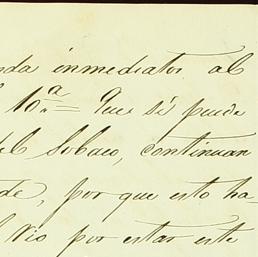 nda inmediator al
10.ª = Que si puede
del Sobaco, continuan
de, por que esto ha-
l rio por estar este